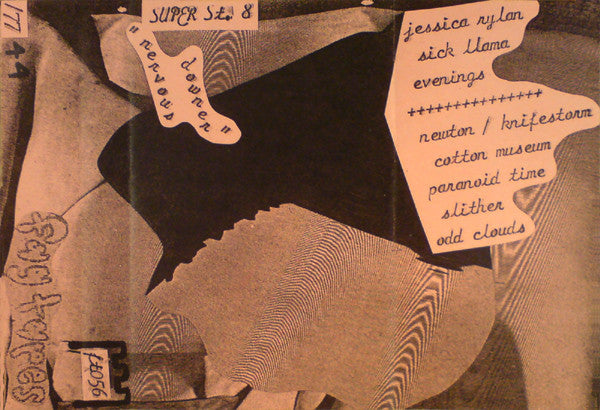 SUPER St. 8
"nervous
downer"
jessica rylan
sick llama
evenings
+++++++++++++++
newton / knifestorm
cotton museum
paranoid time
slither
odd clouds
44
/77
fag tapes
ft056